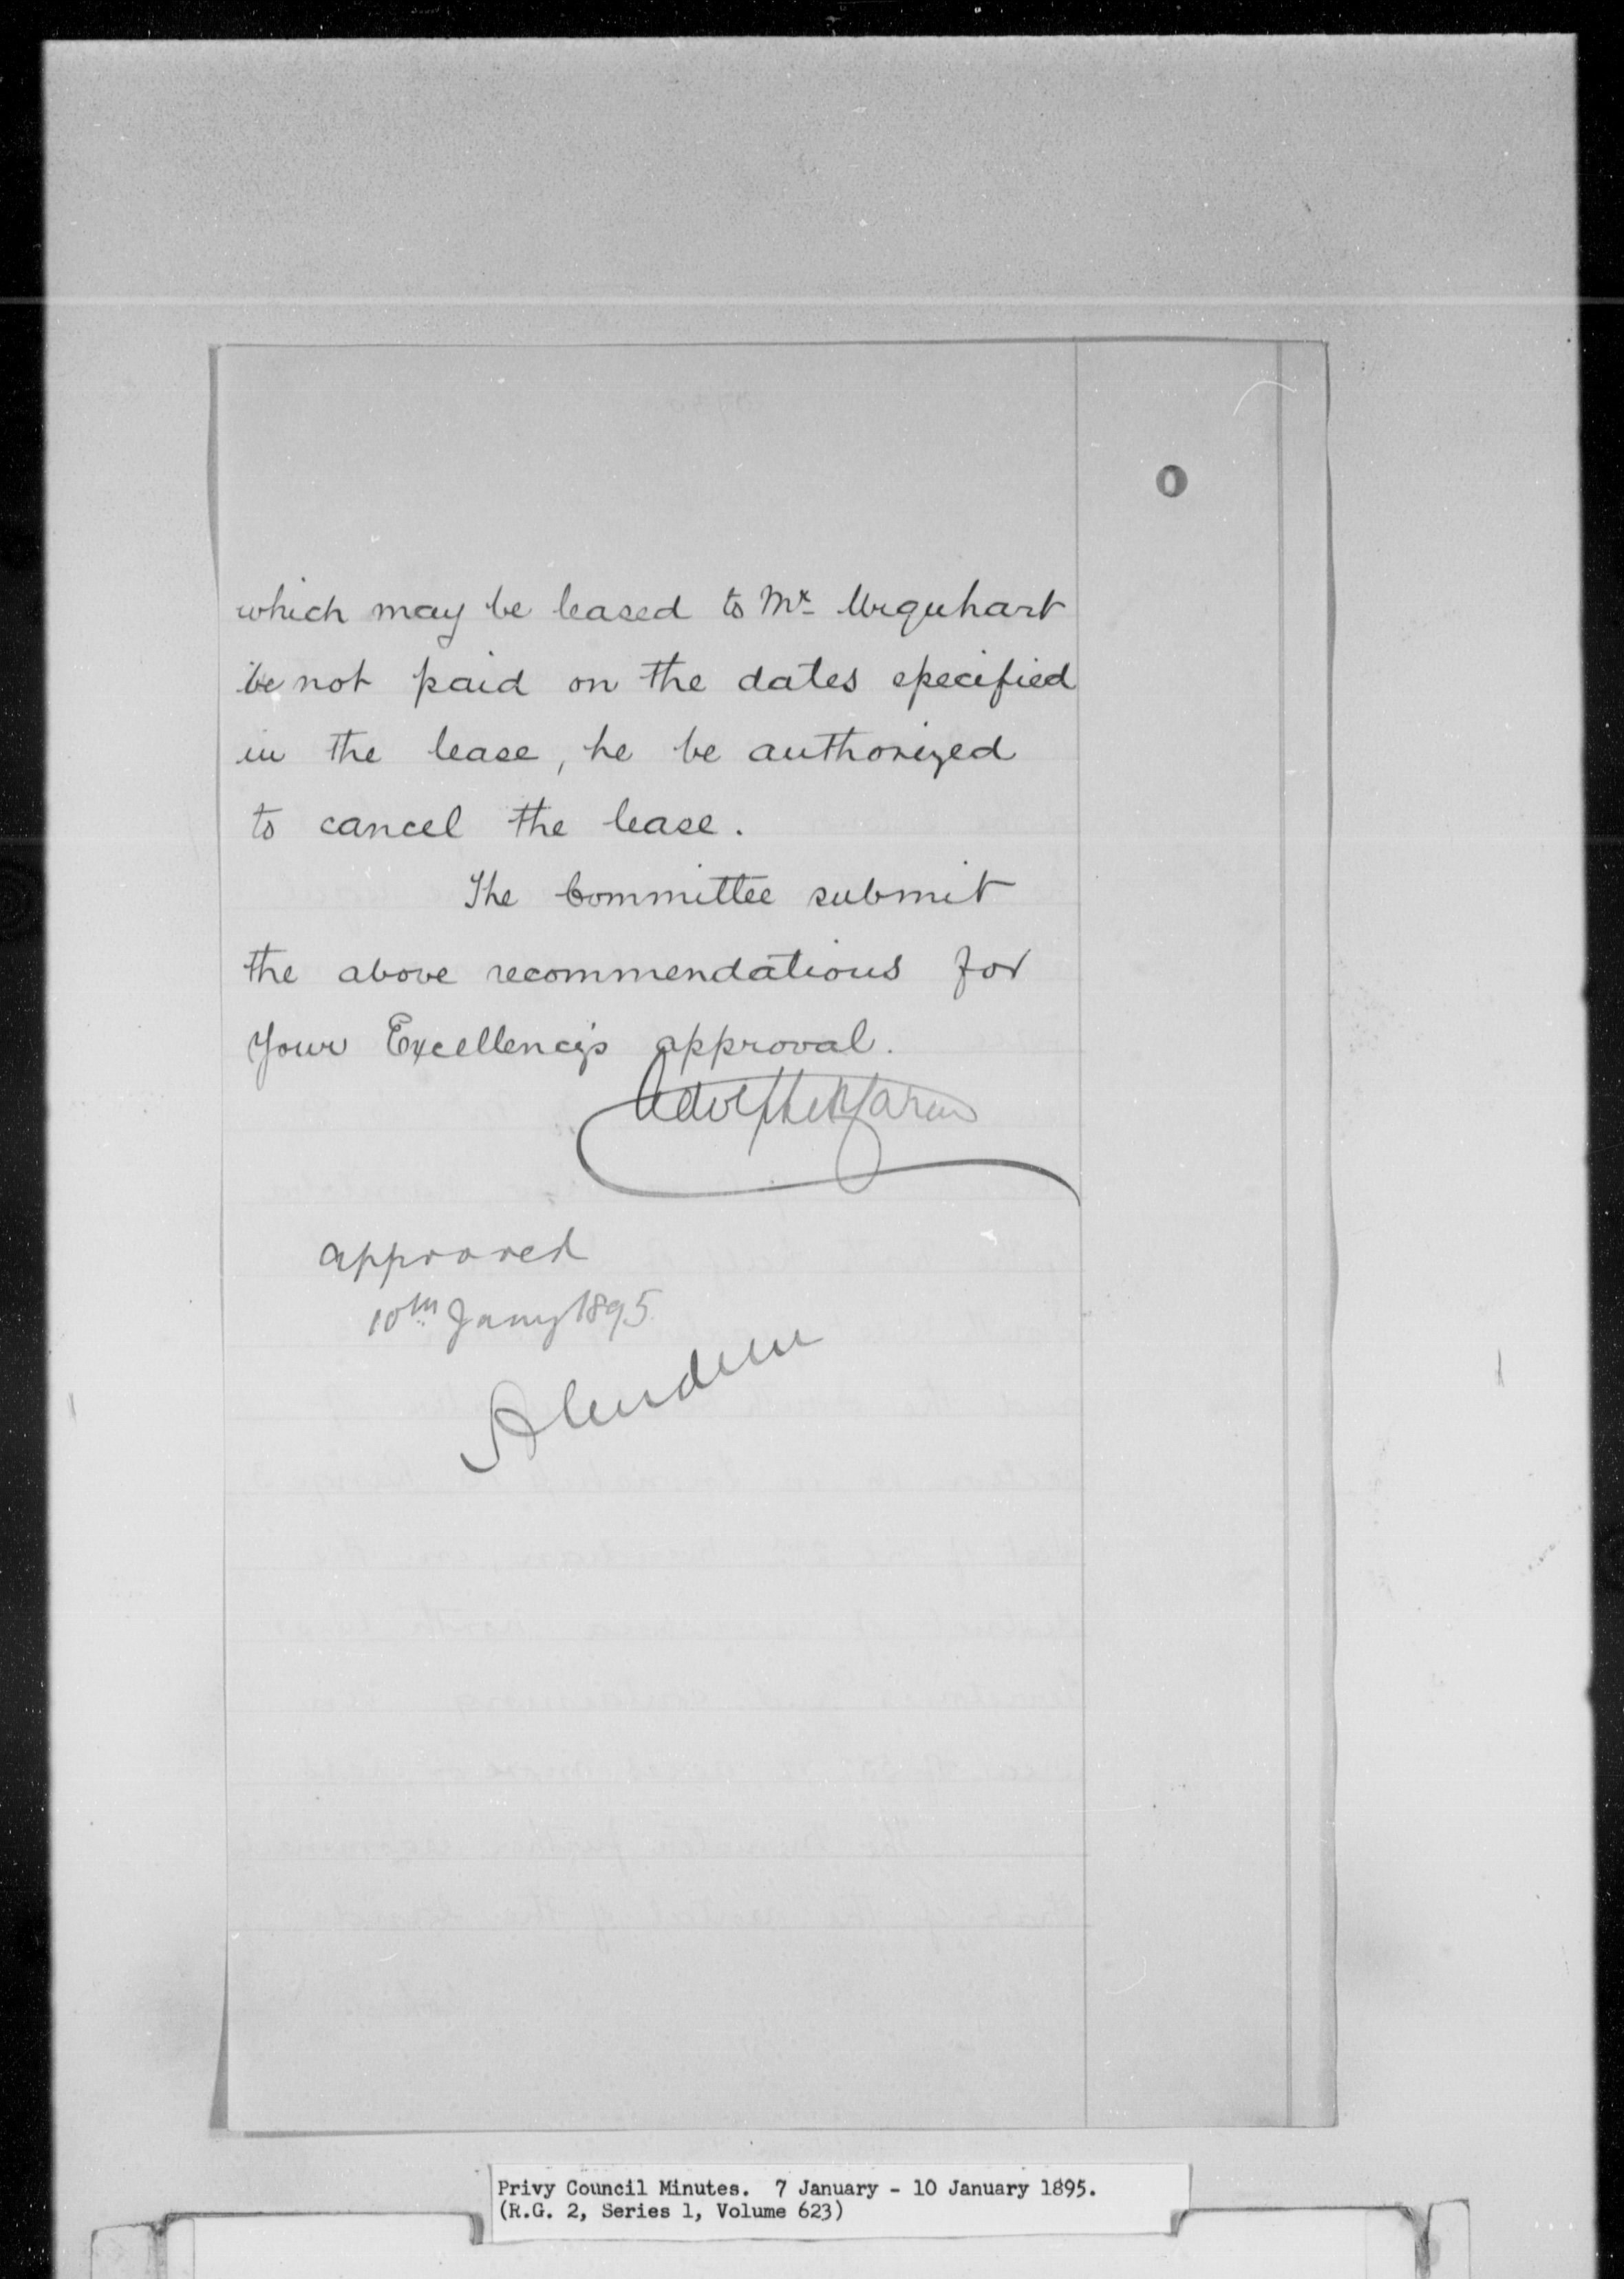 which may be leased to Mr. Urquhart
be not paid on the dates specified
in the lease, he be authorized
to cancel the lease.
The Committee submit
the above recommendations for
Your Excellency's approval.
Adolphe P Caron
approved
10th Jany 1895
Aberdeen
Privy Council Minutes. 7 January - 10 January 1895.
(R.G. 2, Series 1, Volume 623)